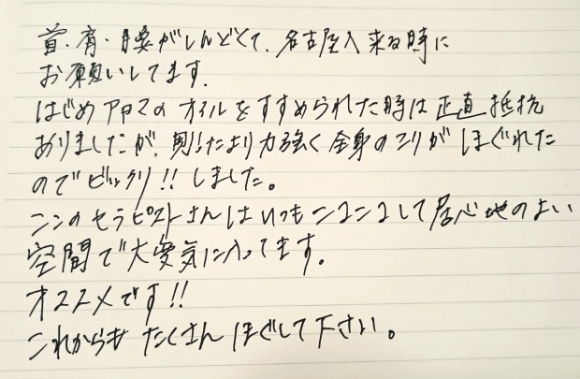 首・肩・腰がしんどくて、名古屋へ来る時に
お願いしてます.
はじめアロマのオイルをすすめられた時は正直抵抗
ありましたが、思ったより力強く全身のコリがほぐれた
のでビックリ!!しました。
ここのセラピストさんはいつもニコニコして居心地のよい
空間で大変気に入ってます。
オススメです!!
これからもたくさんほぐして下さい。